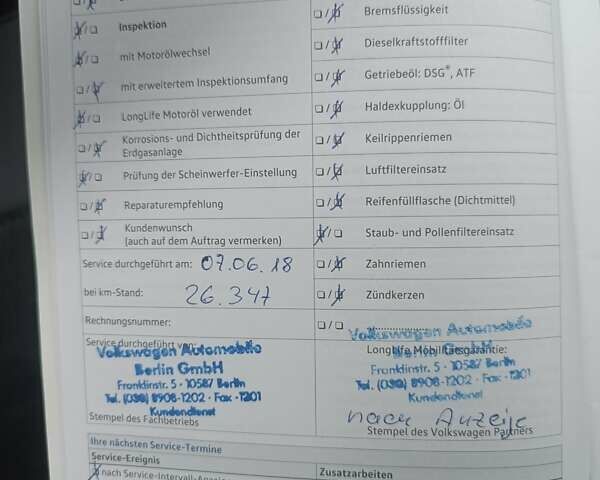 Inspektion
mit Motorölwechsel
mit erweitertem Inspektionsumfang
LongLife Motoröl verwendet
Korrosions- und Dichtheitsprüfung der
Erdgasanlage
Prüfung der Scheinwerfer-Einstellung
Reparaturempfehlung
Kundenwunsch
(auch auf dem Auftrag vermerken)
Service durchgeführt am: 07.06.18
bei km-Stand: 26.347
Rechnungsnummer:
Service durchgeführt von:
Volkswagen Automobile
Berlin GmbH
Franklinstr. 5 · 10587 Berlin
Tel. (030) 8908-1202 · Fax -1201
Kundendienst
Stempel des Fachbetriebs
Bremsflüssigkeit
Dieselkraftstofffilter
Getriebeöl: DSG®, ATF
Haldexkupplung: Öl
Keilrippenriemen
Luftfiltereinsatz
Reifenfüllflasche (Dichtmittel)
Staub- und Pollenfiltereinsatz
Zahnriemen
Zündkerzen
Volkswagen Automobile
LongLife Mobilitätsgarantie:
Franklinstr. 5 · 10587 Berlin
Tel. (030) 8908-1202 · Fax -1201
Kundendienst
nach Anzeige
Stempel des Volkswagen Partners
Ihre nächsten Service-Termine
Service-Ereignis
nach Service-Intervall-Anzeige
Zusatzarbeiten